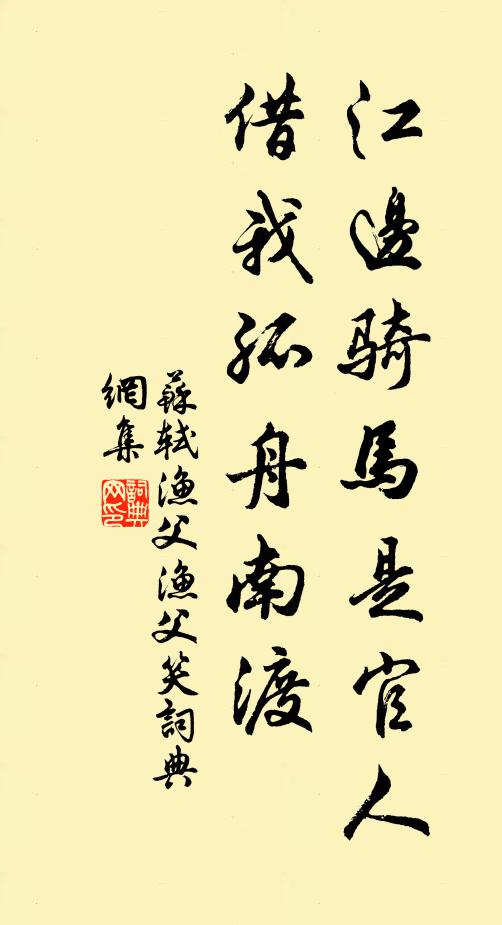 江邊騎馬是官人
借我孤舟南渡
蘇軾漁父漁父笑詞典
網集
詞典
网印